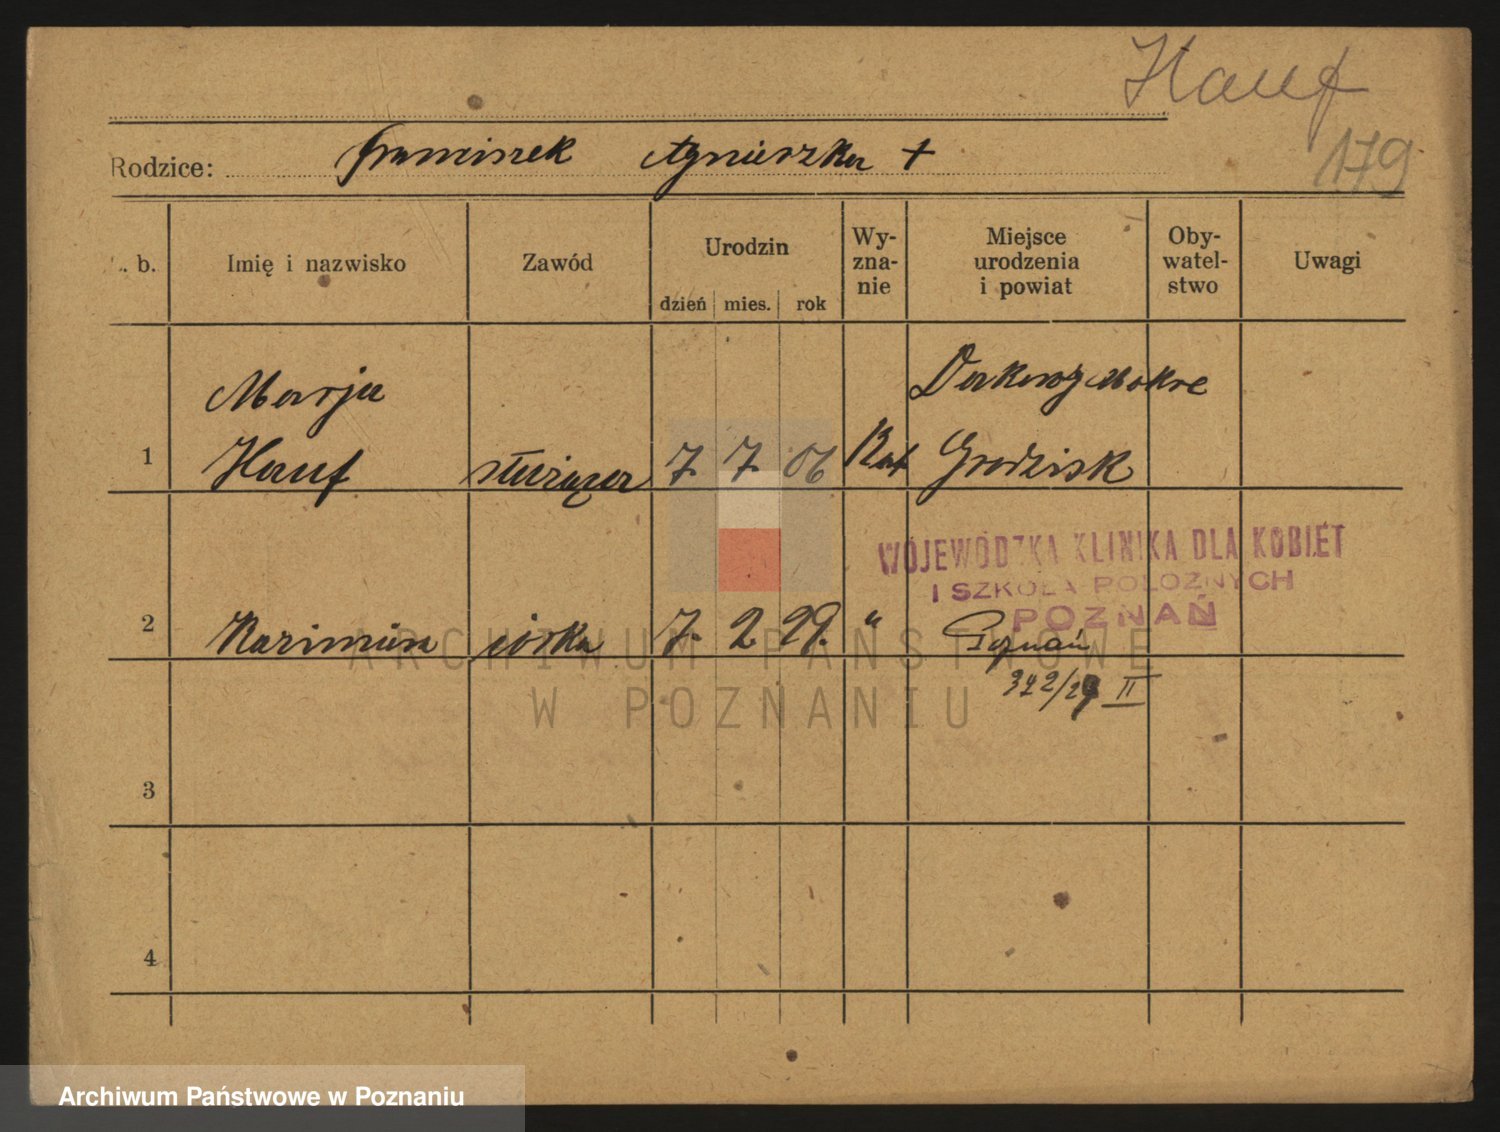 Hauf
179
Rodzice: Franciszek Agnieszka +
L. b. Imię i nazwisko Zawód Urodzin dzień mies. rok Wy-zna-nie Miejsce urodzenia i powiat Oby-watel-stwo Uwagi
Marja Dakowy Mokre
1 Hauf służąca 7. 7. 06 Kat Grodzisk
WOJEWÓDZKA KLINIKA DLA KOBIET
I SZKOŁA POŁOŻNYCH
POZNAŃ
2 Kazimiera córka 7. 2 29. " Poznań
372/29 II
3
4
ARCHIWUM PAŃSTWOWE
W POZNANIU
Archiwum Państwowe w Poznaniu